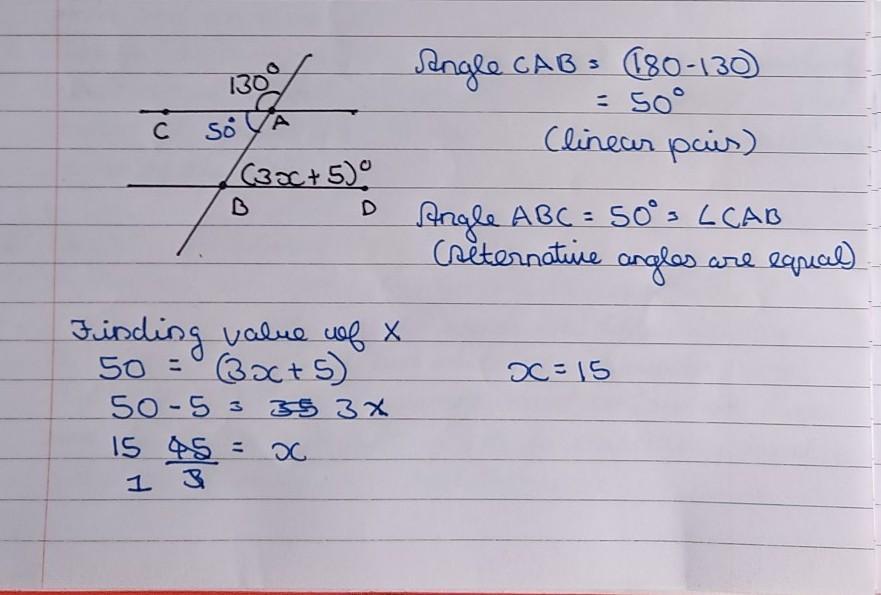 130°
C 50° A
(3x+5)°
B D
Angle CAB = (180-130)
= 50°
(linear pair)
Angle ABC = 50° = ∠CAB
(Alternative angles are equal)
Finding value of x
50 = (3x+5)
50-5 = 35 3x
15 45 = x
1 3
x=15